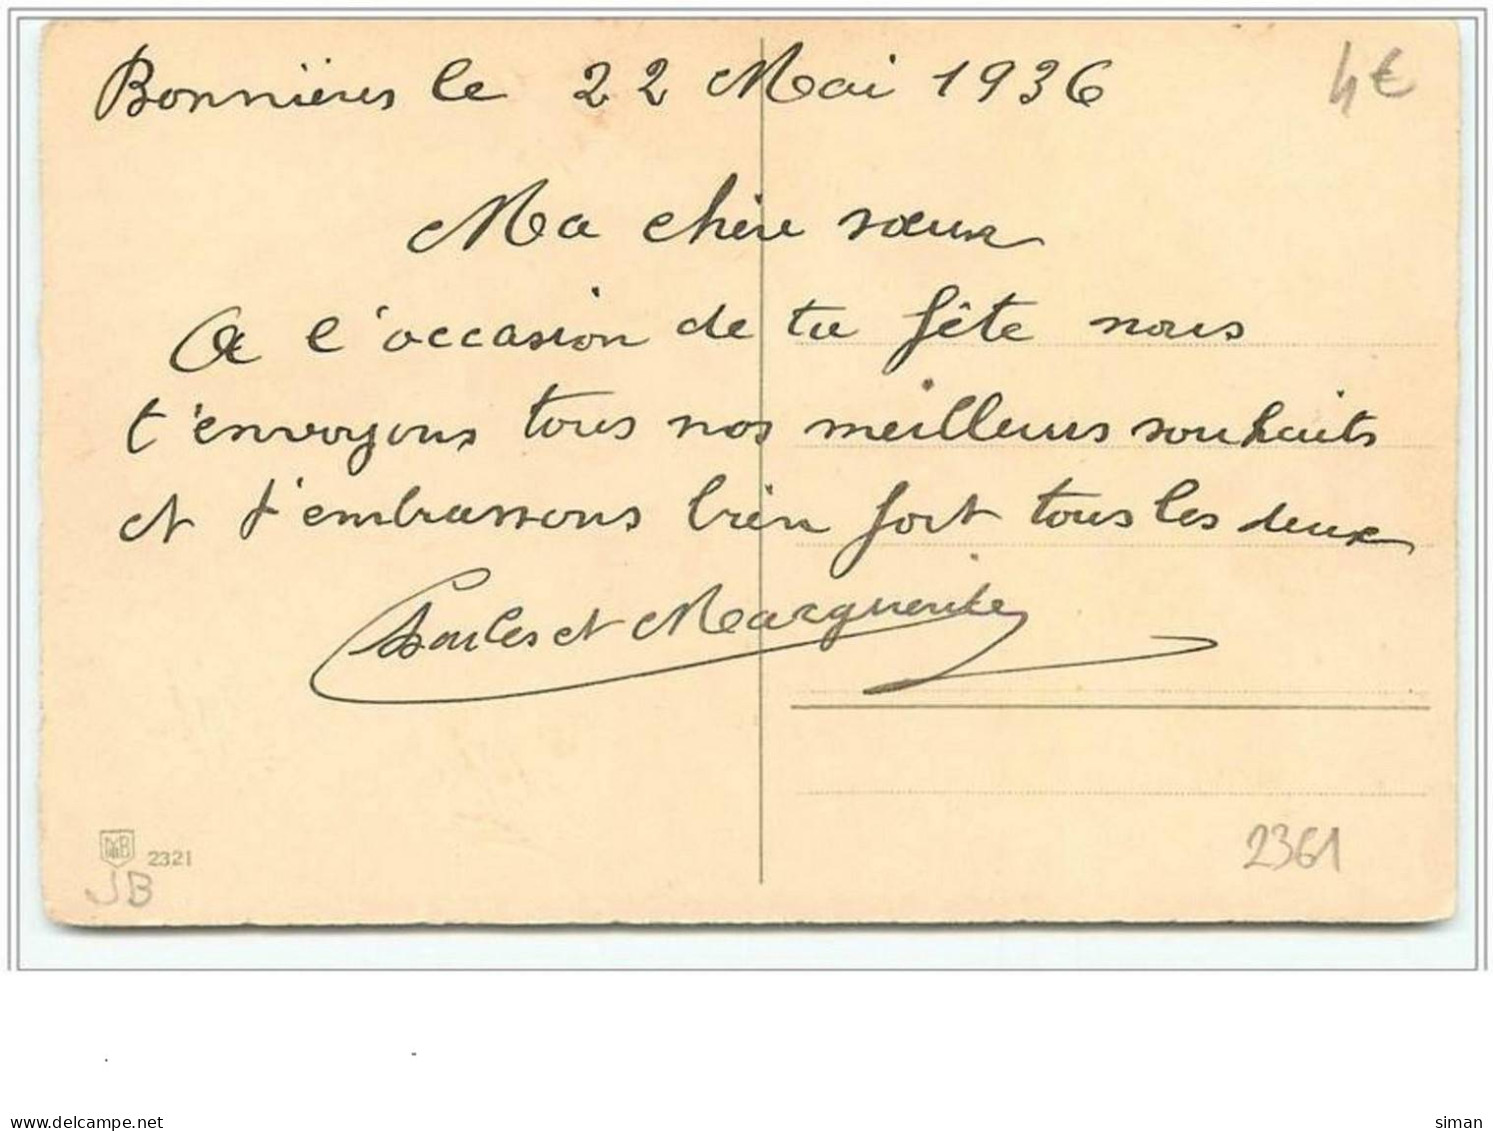 Bonnières le 22 Mai 1936
4€
Ma chère sœur
A l'occasion de ta fête nous
t'envoyons tous nos meilleurs souhaits
et t'embrassons bien fort tous les deux
Charles et Marguerite
2361
2321
JB
www.delcampe.net
siman